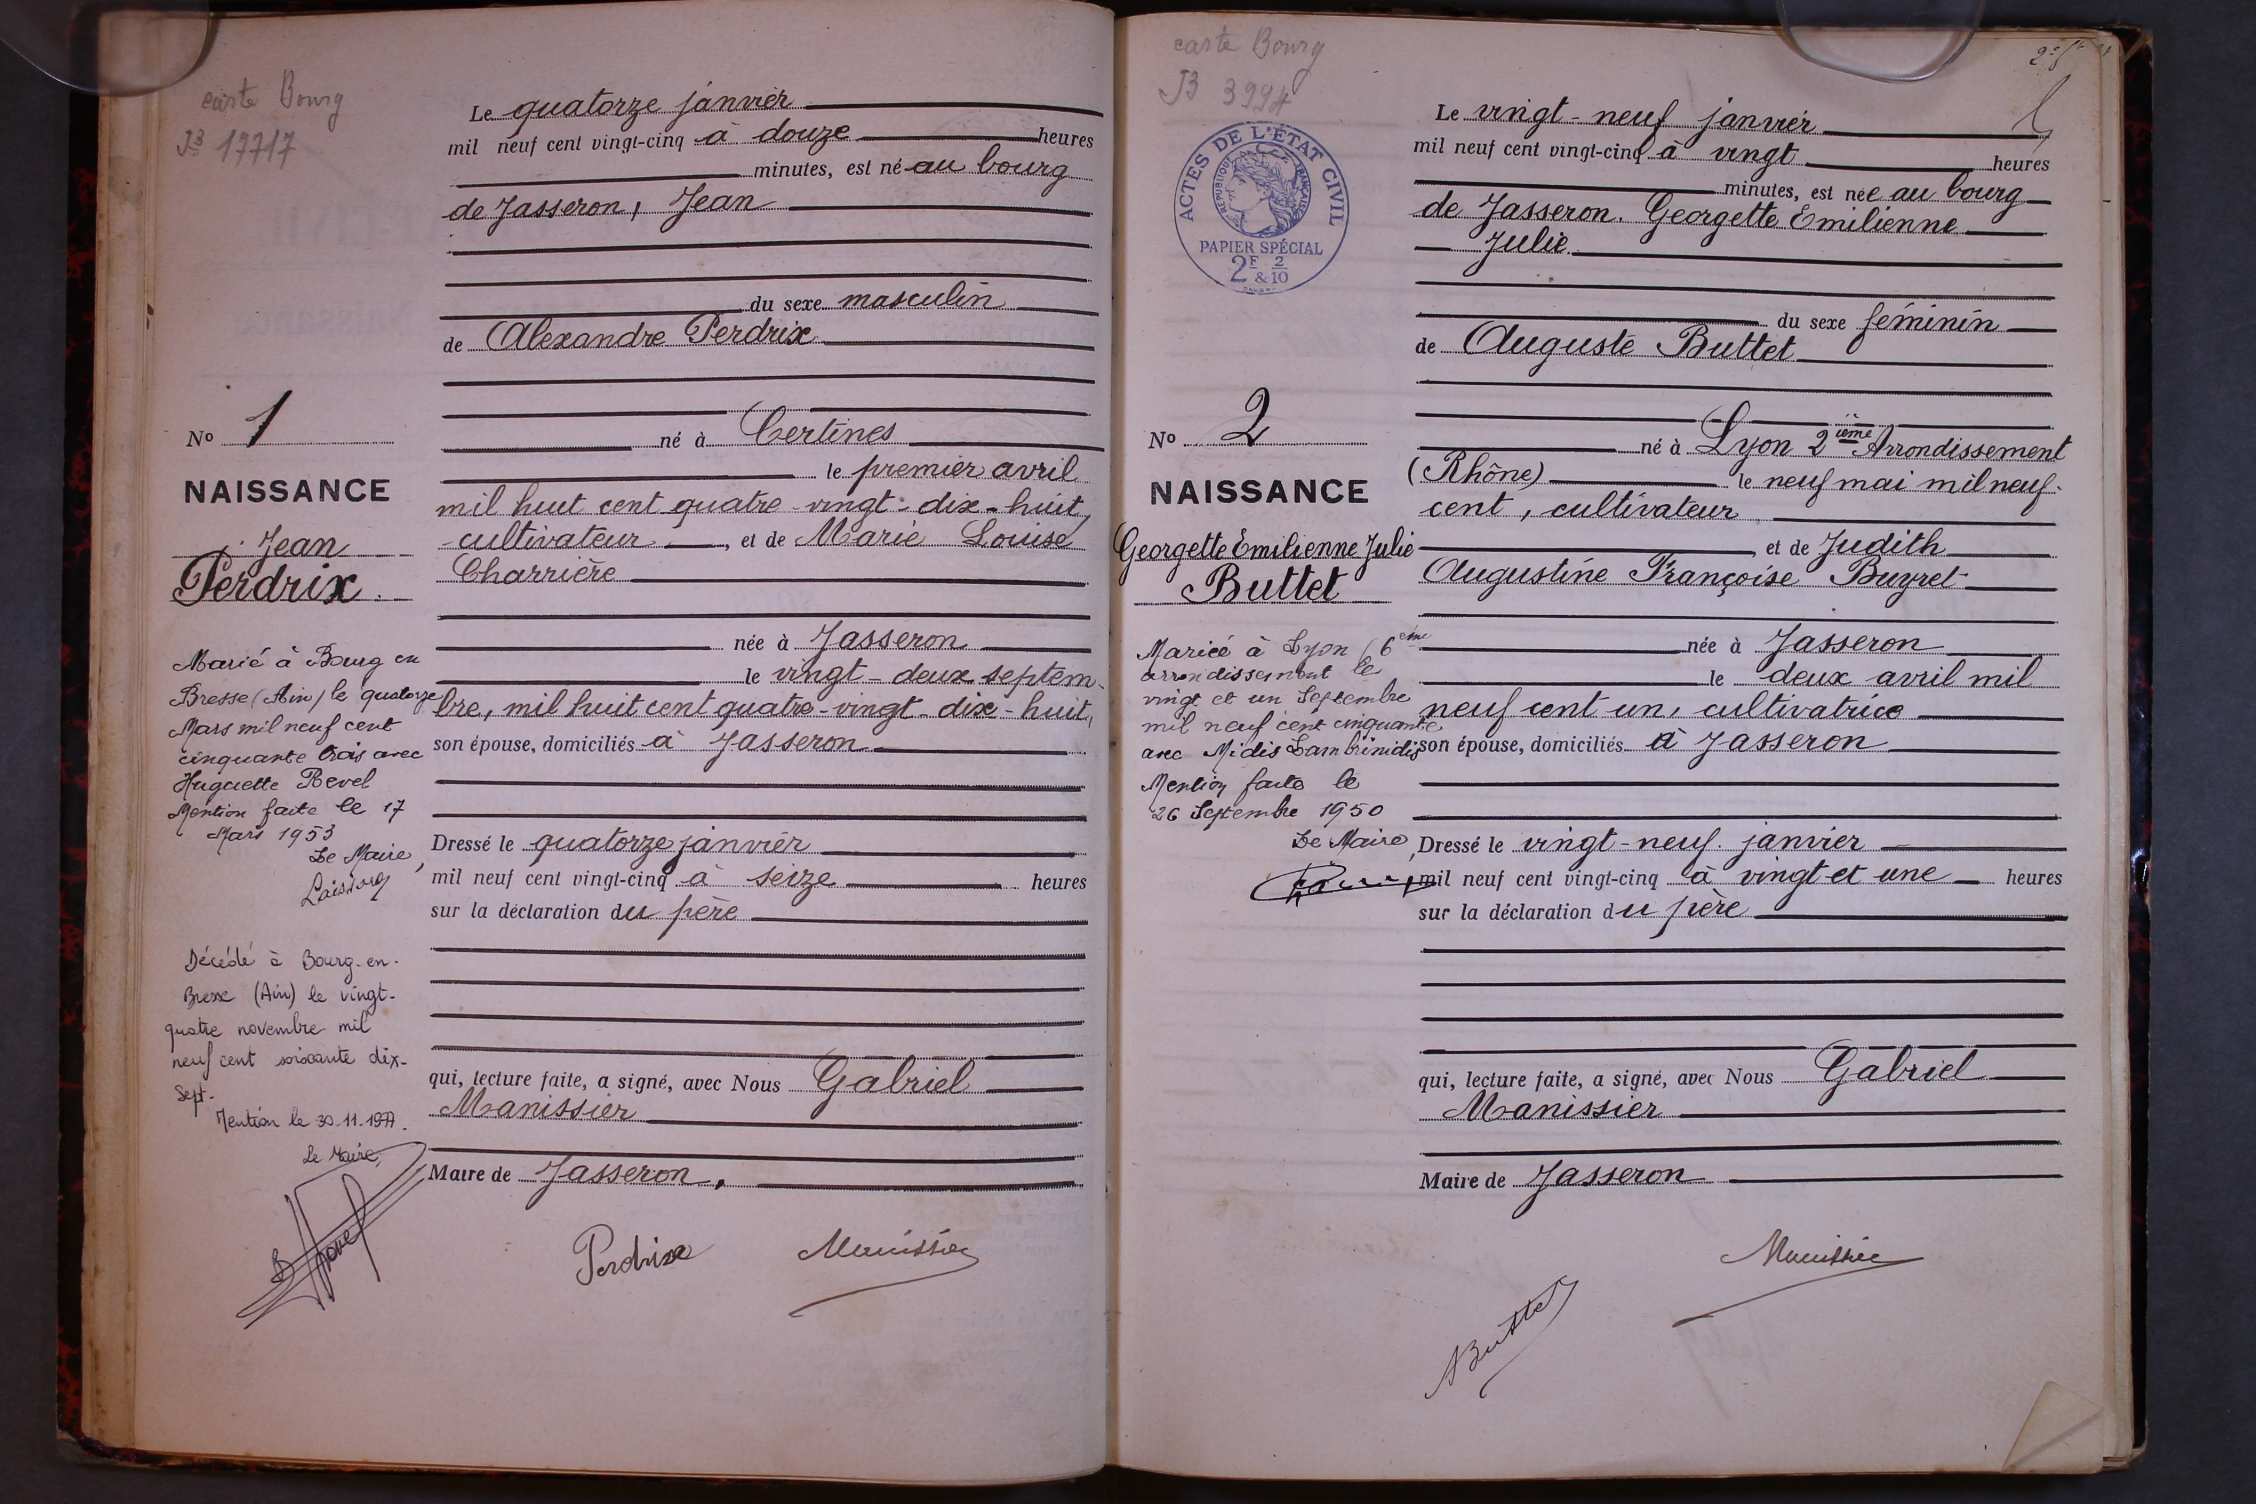 carte Bourg
13717
Le quatorze janvier
mil neuf cent vingt-cinq à douze heures
minutes, est né au bourg
de Jasseron, Jean
du sexe masculin
de Alexandre Perdrix
né à Certines
le premier avril
mil huit cent quatre-vingt-dix-huit,
cultivateur, et de Marie Louise
Charrière
née à Jasseron
le vingt-deux septem-
bre, mil huit cent quatre-vingt-dix-huit,
son épouse, domiciliés à Jasseron
Dressé le quatorze janvier
mil neuf cent vingt-cinq à seize heures
sur la déclaration du père
qui, lecture faite, a signé, avec Nous Gabriel
Manissier
Maire de Jasseron,
Perdrix Manissier
No 1
NAISSANCE
Jean
Perdrix.
Marié à Bourg en
Bresse (Ain) le quatorze
Mars mil neuf cent
cinquante trois avec
Huguette Revel
Mention faite le 17
Mars 1953
Le Maire,
Décédé à Bourg-en-
Bresse (Ain) le vingt-
quatre novembre mil
neuf cent soixante dix-
sept.
Mention le 30-11-1977.
Le Maire,
carte Bourg
3994
ACTES DE L'ÉTAT CIVIL
RÉPUBLIQUE FRANÇAISE
PAPIER SPÉCIAL
2F & 2/10
No 2
NAISSANCE
Georgette Emilienne Julie
Buttet
Mariée à Lyon (6eme
arrondissement le
vingt et un Septembre
mil neuf cent cinquante
avec Midis Lambrinidis
Mention faite le
26 Septembre 1950
Le Maire,
Le vingt-neuf janvier
mil neuf cent vingt-cinq à vingt heures
minutes, est née au bourg
de Jasseron. Georgette Emilienne
Julie
du sexe féminin
de Auguste Buttet
né à Lyon 2ième Arrondissement
(Rhône) le neuf mai mil neuf-
cent, cultivateur
et de Judith
Augustine Françoise Buyret
née à Jasseron
le deux avril mil
neuf cent un, cultivatrice
son épouse, domiciliés à Jasseron
Dressé le vingt-neuf janvier
mil neuf cent vingt-cinq à vingt-et une heures
sur la déclaration du père
qui, lecture faite, a signé, avec Nous Gabriel
Manissier
Maire de Jasseron
Manissier
Buttet